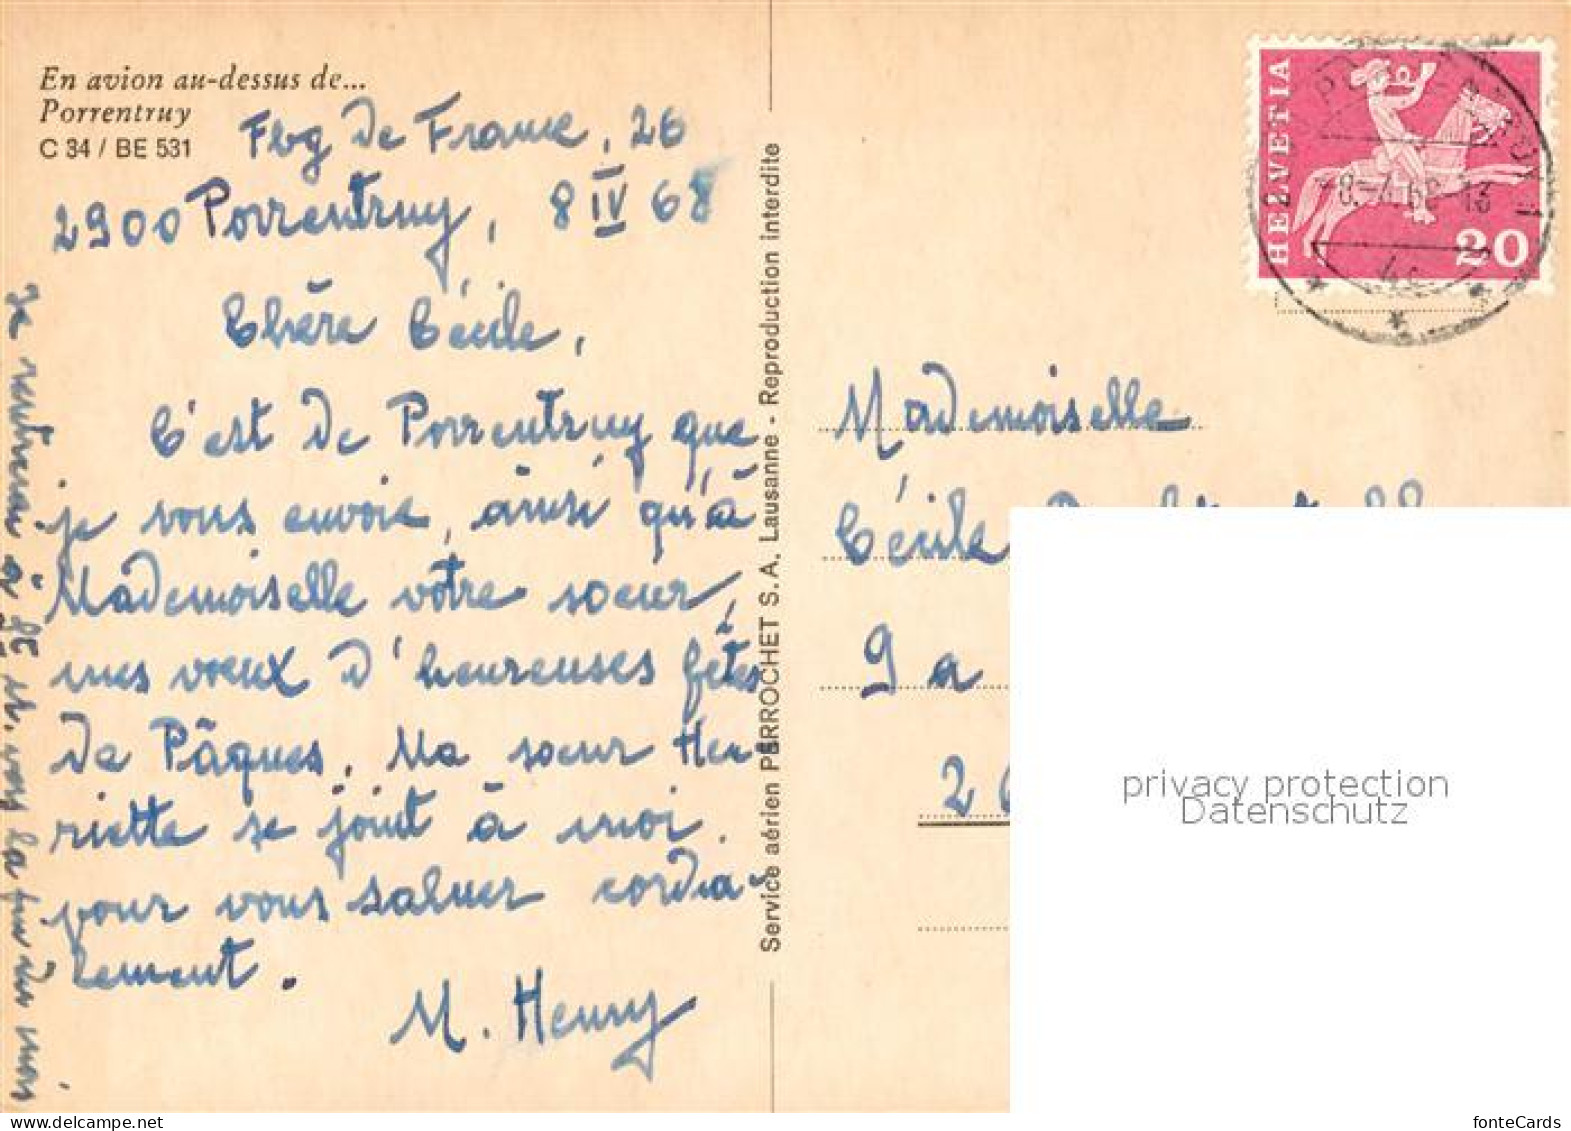 En avion au-dessus de...
Porrentruy
C 34 / BE 531
Fbg de France, 26
2900 Porrentruy, 8 IV 68
Chère Cécile,
C'est de Porrentruy que
je vous envoie, ainsi qu'à
Mademoiselle votre soeur,
mes voeux d'heureuses fêtes
de Pâques. Ma soeur Hen-
riette se joint à moi
pour vous saluer cordia-
lement.
M. Henry
Je rentrerai à vers la fin du mois
Service aérien PERROCHET S.A. Lausanne - Reproduction interdite
HELVETIA
20
-8.-4.68-13
Mademoiselle
Cécile
9a
26
privacy protection
Datenschutz
fonteCards